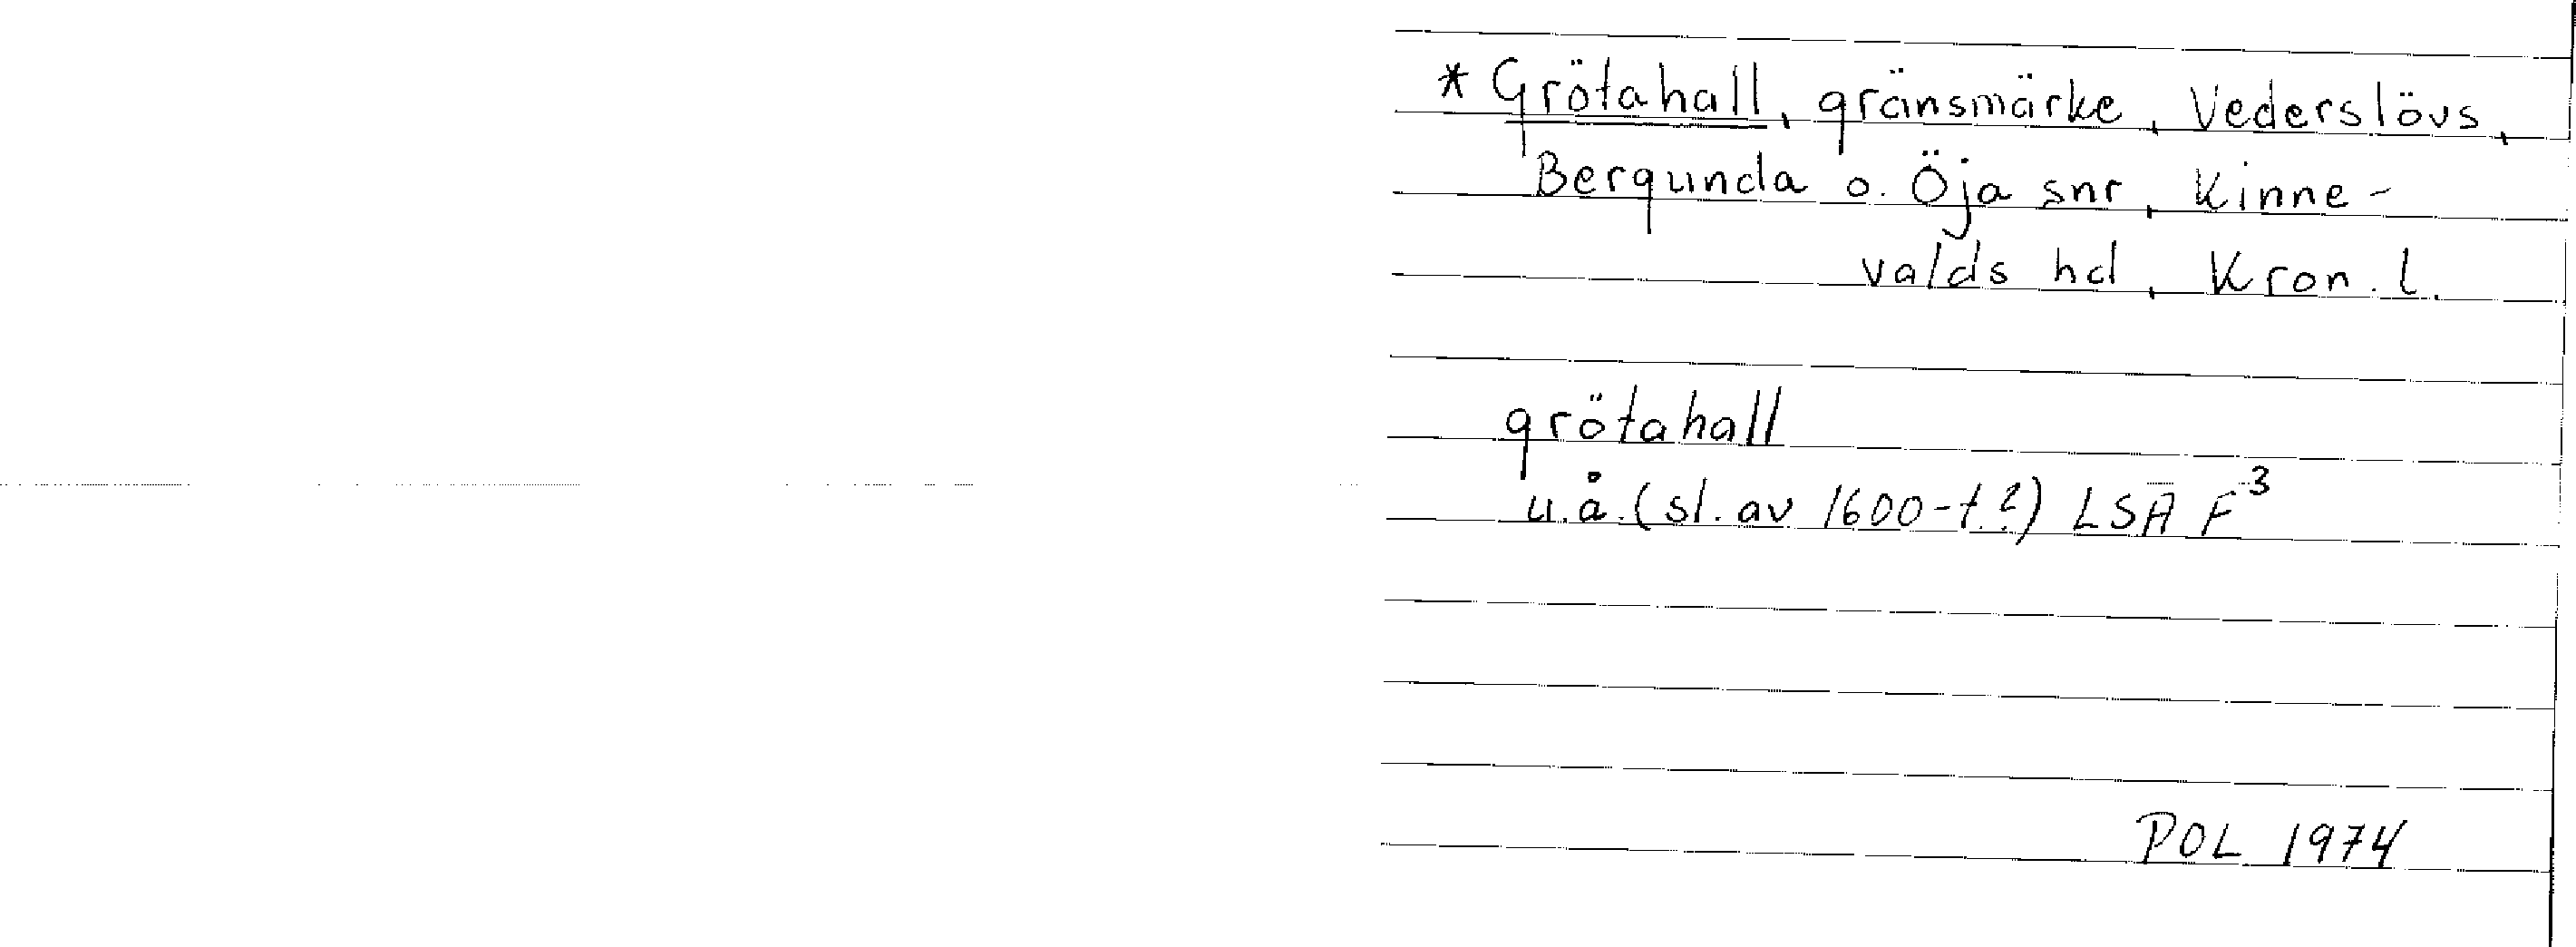 * Grötahall, gränsmärke, Vederslövs,
Bergunda o. Öja snr, Kinne-
valds hd, Kron. l.
grötahall
u.å. (sl. av 1600-t.?) LSA F³
POL 1974